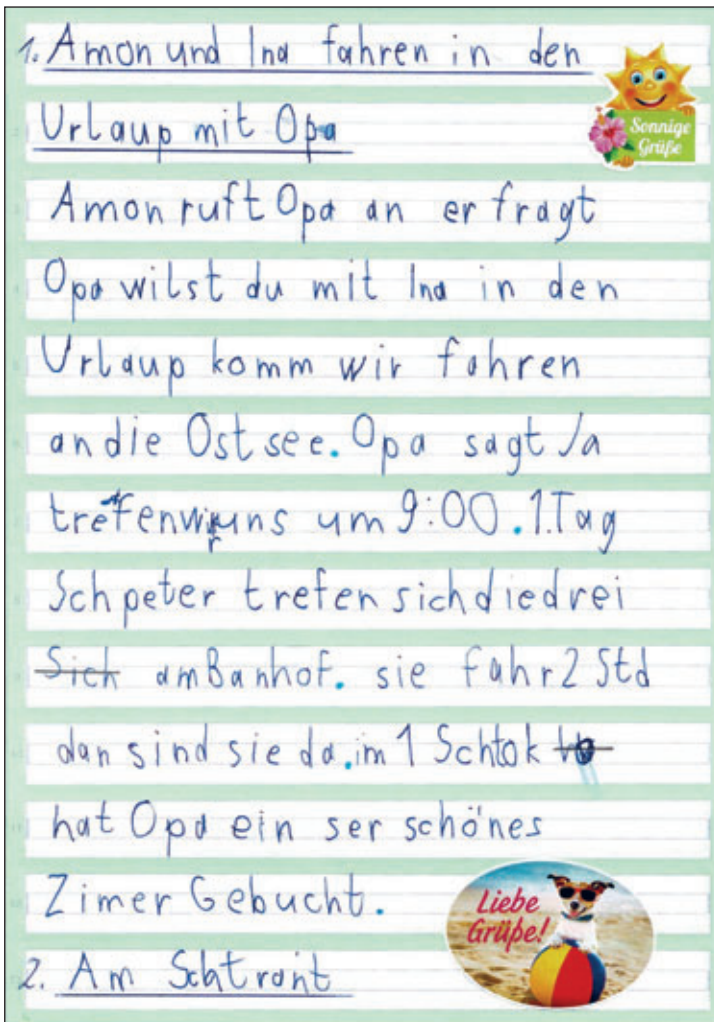 1. Amon und Ina fahren in den
Urlaup mit Opa
Sonnige
Grüße
Amon ruft Opa an er fragt
Opa wilst du mit Ina in den
Urlaup komm wir fahren
an die Ostsee. Opa sagt Ja
trefen wir uns um 9:00. 1. Tag
Schpeter trefen sich die drei
Sich am Banhof. sie fahr 2 Std
dan sind sie da. im 1 Schtok
hat Opa ein ser schönes
Zimer Gebucht.
Liebe
Grüße!
2. Am Schtrant